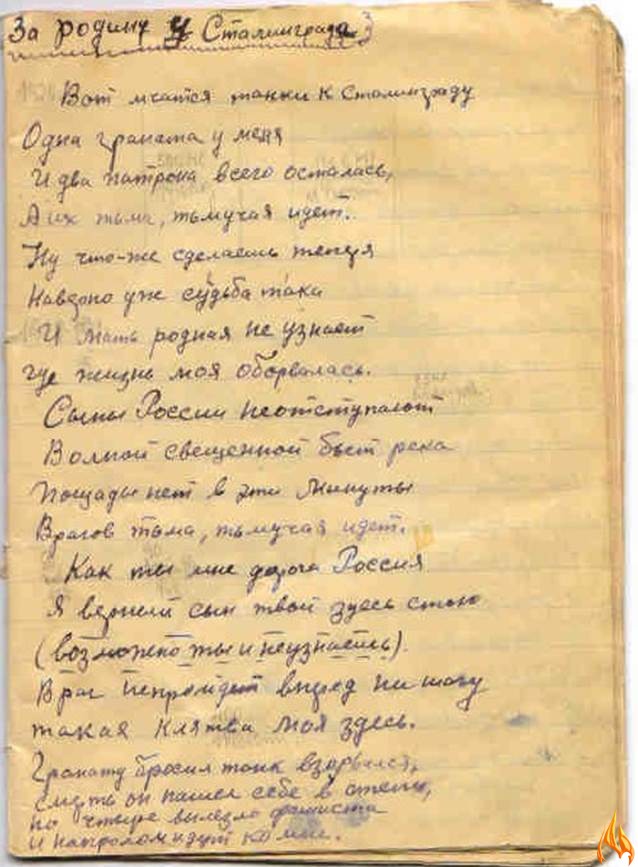 За родину у Сталинграда
Вот мчатся танки к Сталинграду
Одна граната у меня
И два патрона всего осталась,
А их тьма, тьмучая идет.
Ну что-же сделаешь теперя
Наверно уже судьба така
И мать родная не узнает
где жизнь моя оборвалась.
Сыны России неотступают
Волной свещенной бьет река
Пощады нет в эти минуты
Врагов тьма, тьмучая идет.
Как ты мне дорога Россия
Я верный сын твой здесь стою
(возможно ты и неузнаешь).
Враг непройдет вперед ни шагу
такая клятва моя здесь.
Гранату бросил танк взорвался,
смерть он нашел себе в степи,
но четыре вылезло фашиста
и напролом идут ко мне.